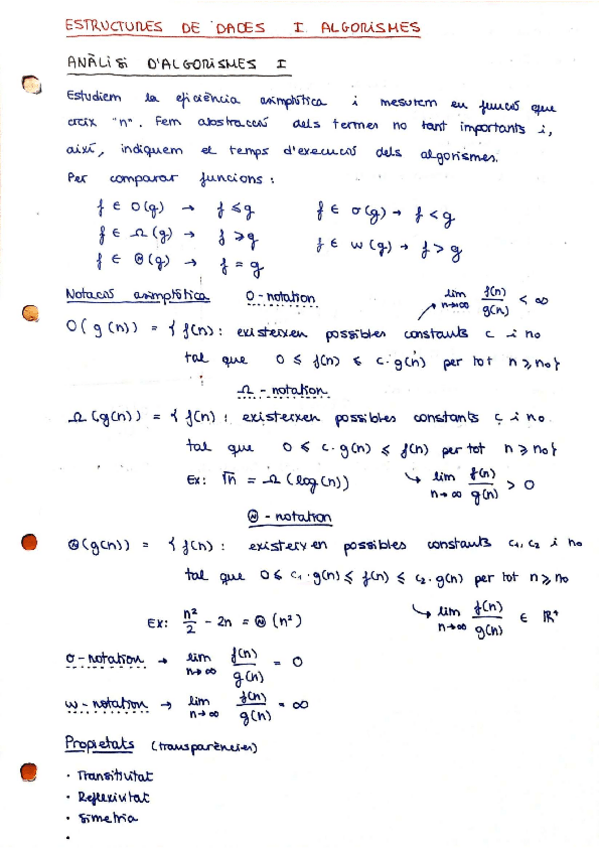 ESTRUCTURES DE DADES I ALGORISMES
ANÀLISI D'ALGORISMES I
Estudiem la eficiència asimptòtica i mesurem en funció que
creix "n". Fem abstracció dels termes no tant importants i,
així, indiquem el temps d'execució dels algorismes.
Per comparar funcions:
f ∈ O(g) → f ≤ g    f ∈ σ(g) → f < g
f ∈ Ω(g) → f ≥ g    f ∈ w(g) → f > g
f ∈ Θ(g) → f = g
Notació asimptòtica    O-notation    lim n→∞ f(n)/g(n) < ∞
O(g(n)) = { f(n): existeixen possibles constants c i no
tal que 0 ≤ f(n) ≤ c·g(n) per tot n ≥ no}
Ω - notation
Ω(g(n)) = { f(n): existeixen possibles constants c i no
tal que 0 ≤ c·g(n) ≤ f(n) per tot n ≥ no}
Ex: √n = Ω(log(n))    ↳ lim n→∞ f(n)/g(n) > 0
Θ - notation
Θ(g(n)) = { f(n): existeixen possibles constants c1, c2 i no
tal que 0 ≤ c1·g(n) ≤ f(n) ≤ c2·g(n) per tot n ≥ no
Ex: n²/2 - 2n = Θ(n²)    ↳ lim n→∞ f(n)/g(n) ∈ ℝ⁺
σ-notation → lim n→∞ f(n)/g(n) = 0
w-notation → lim n→∞ f(n)/g(n) = ∞
Propietats (transparències)
· Transitivitat
· Reflexivitat
· Simetria
·